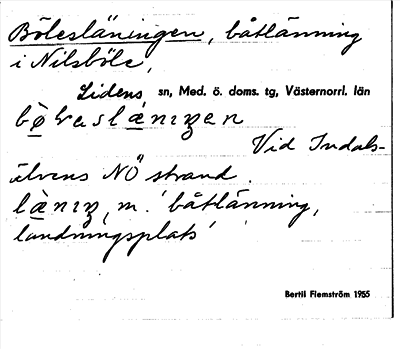 Böleslänningen, båtlänning
i Nilsböle,
Lidens sn, Med. ö. doms. tg, Västernorrl. län
Vid Indals-
älvens NÖ strand.
m. 'båtlänning,
landningsplats'
Bertil Flemström 1955